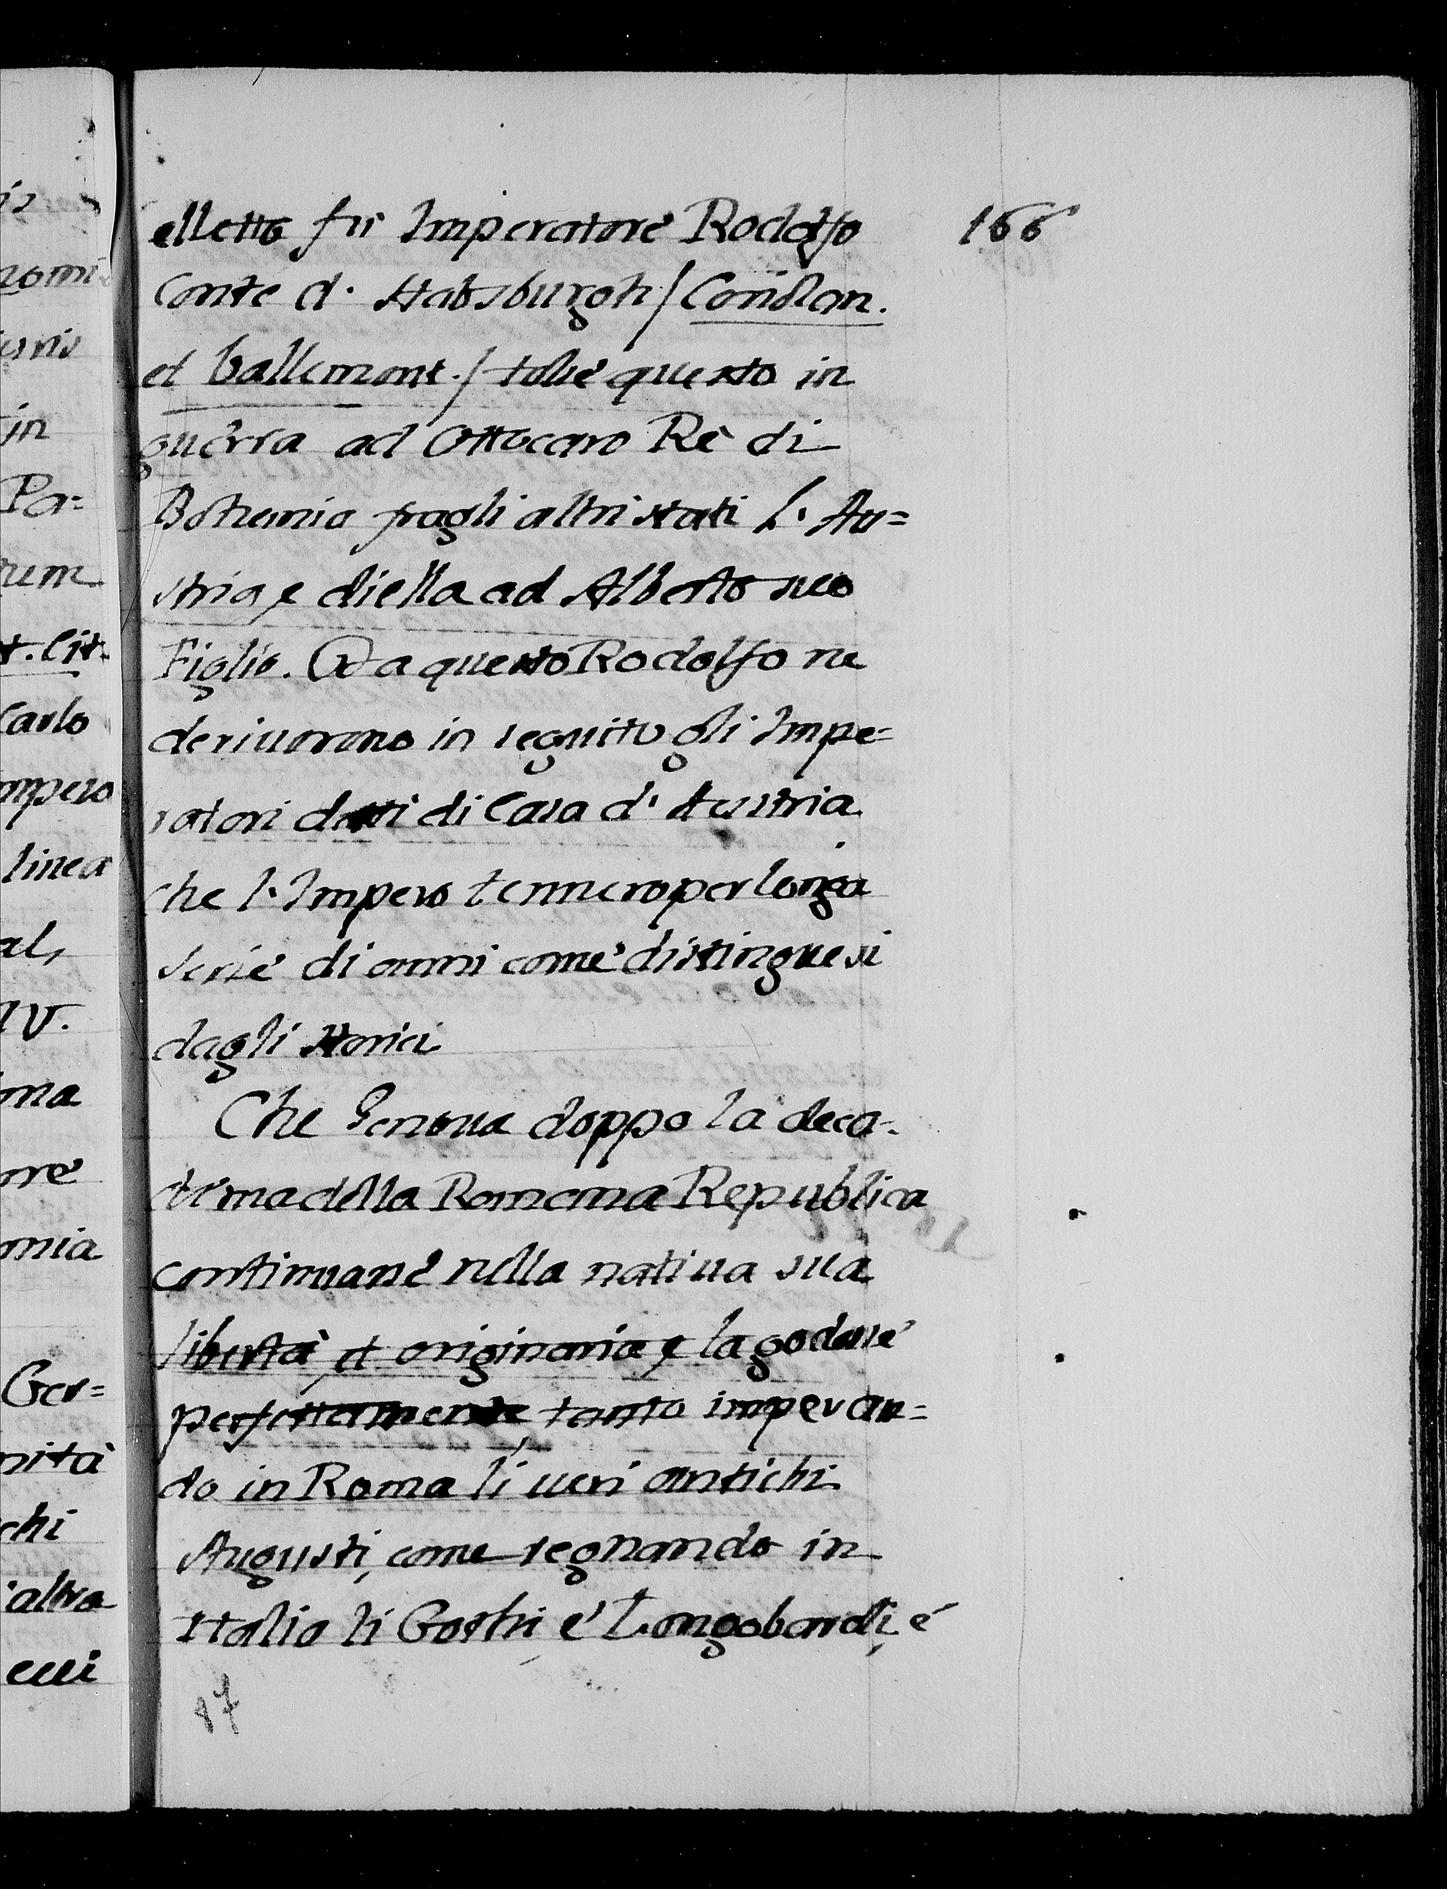 elletto fù Imperatorè Rodolfo 166
Conte d' Habsburgh / Coridlan.
et Vallemont. / tolsè questo in
guèrra ad Ottocaro Rè di
Bohemia fragli altri stati l' Au=
stria, e diella ad Alberto suo
Figlio. Da questo Rodolfo ne
deriuorono in seguito gli Impe=
ratori detti di Casa d' Austria
che l' Impero tennero per longa
seriè di anni comè distinguesi
dagli storici
Che Genoua doppo la deca-
denza della Romana Republica
continuassè nella natiua sua
libertà, et originaria, e la godessè
perfettamente tanto imperan=
do in Roma li ueri antichi
Augusti, come regnando in
Italia li Gothi, e' Longobardi, é
87